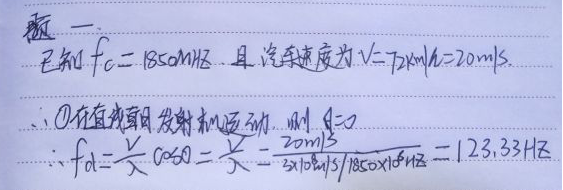 题一.
已知 fc = 1850MHZ 且汽车速度为 V=72km/h=20m/s.
∴ ①在直线朝目发射机运动, 则 θ=0
∴ fd = V/λ cosθ = V/λ = 20m/s / 3×10⁸m/s/1850×10⁶HZ = 123.33HZ